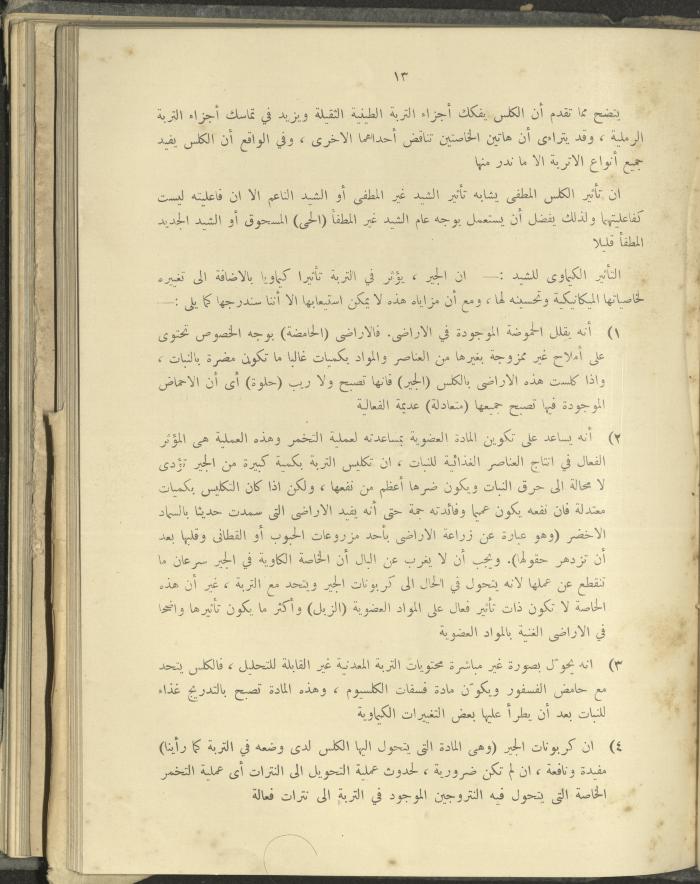 ١٣
يتضح مما تقدم أن الكلس يفكك أجزاء التربة الطينية الثقيلة ويزيد في تماسك أجزاء التربة
الرملية ، وقد يتراءى أن هاتين الخاصتين تناقض أحداهما الاخرى ، وفي الواقع أن الكلس يفيد
جميع أنواع الاتربة الا ما ندر منها
ان تأثير الكلس المطفى يشابه تأثير الشيد غير المطفى أو الشيد الناعم الا ان فاعليته ليست
كفاعليتهما ولذلك يفضل أن يستعمل بوجه عام الشيد غير المطفأ (الحى) المسحوق أو الشيد الجديد
المطفأ قليلا
التأثير الكيماوى للشيد :— ان الجير ، يؤثر في التربة تأثيرا كيماويا بالاضافة الى تغييره
لخاصياتها الميكانيكية وتحسينه لها ، ومع أن مزاياه هذه لا يمكن استيعابها الا أننا سندرجها كما يلى :—
١) أنه يقلل الحموضة الموجودة في الاراضى. فالاراضى (الحامضة) بوجه الخصوص تحتوى
على أملاح غير ممزوجة بغيرها من العناصر والمواد بكميات غالبا ما تكون مضرة بالنبات ،
واذا كلست هذه الاراضى بالكلس (الجير) فانها تصبح ولا ريب (حلوة) أى أن الاحماض
الموجودة فيها تصبح جميعها (متعادلة) عديمة الفعالية
٢) أنه يساعد على تكوين المادة العضوية بمساعدته لعملية التخمر وهذه العملية هى المؤثر
الفعال في انتاج العناصر الغذائية للنبات ، ان تكليس التربة بكمية كبيرة من الجير تؤدى
لا محالة الى حرق النبات ويكون ضرها أعظم من نفعها ، ولكن اذا كان التكليس بكميات
معتدلة فان نفعه يكون عميما وفائدته جمة حتى أنه يفيد الاراضى التى سمدت حديثا بالسماد
الاخضر (وهو عبارة عن زراعة الاراضى بأحد مزروعات الحبوب أو القطانى وقلبها بعد
أن تزدهر حقولها). ويجب أن لا يغرب عن البال أن الخاصة الكاوية في الجير سرعان ما
تنقطع عن عملها لانه يتحول في الحال الى كربونات الجير ويتحد مع التربة ، غير أن هذه
الخاصة لا تكون ذات تأثير فعال على المواد العضوية (الزبل) وأكثر ما يكون تأثيرها واضحا
في الاراضى الغنية بالمواد العضوية
٣) انه يحوّل بصورة غير مباشرة محتويات التربة المعدنية غير القابلة للتحليل ، فالكلس يتحد
مع حامض الفسفور ويكوّن مادة فسفات الكلسيوم ، وهذه المادة تصبح بالتدريج غذاء
للنبات بعد أن يطرأ عليها بعض التغييرات الكيماوية
٤) ان كربونات الجير (وهى المادة التى يتحول اليها الكلس لدى وضعه في التربة كما رأينا)
مفيدة ونافعة ، ان لم تكن ضرورية ، لحدوث عملية التحويل الى النترات أى عملية التخمر
الخاصة التى يتحول فيه النتروجين الموجود في التربة الى نترات فعالة